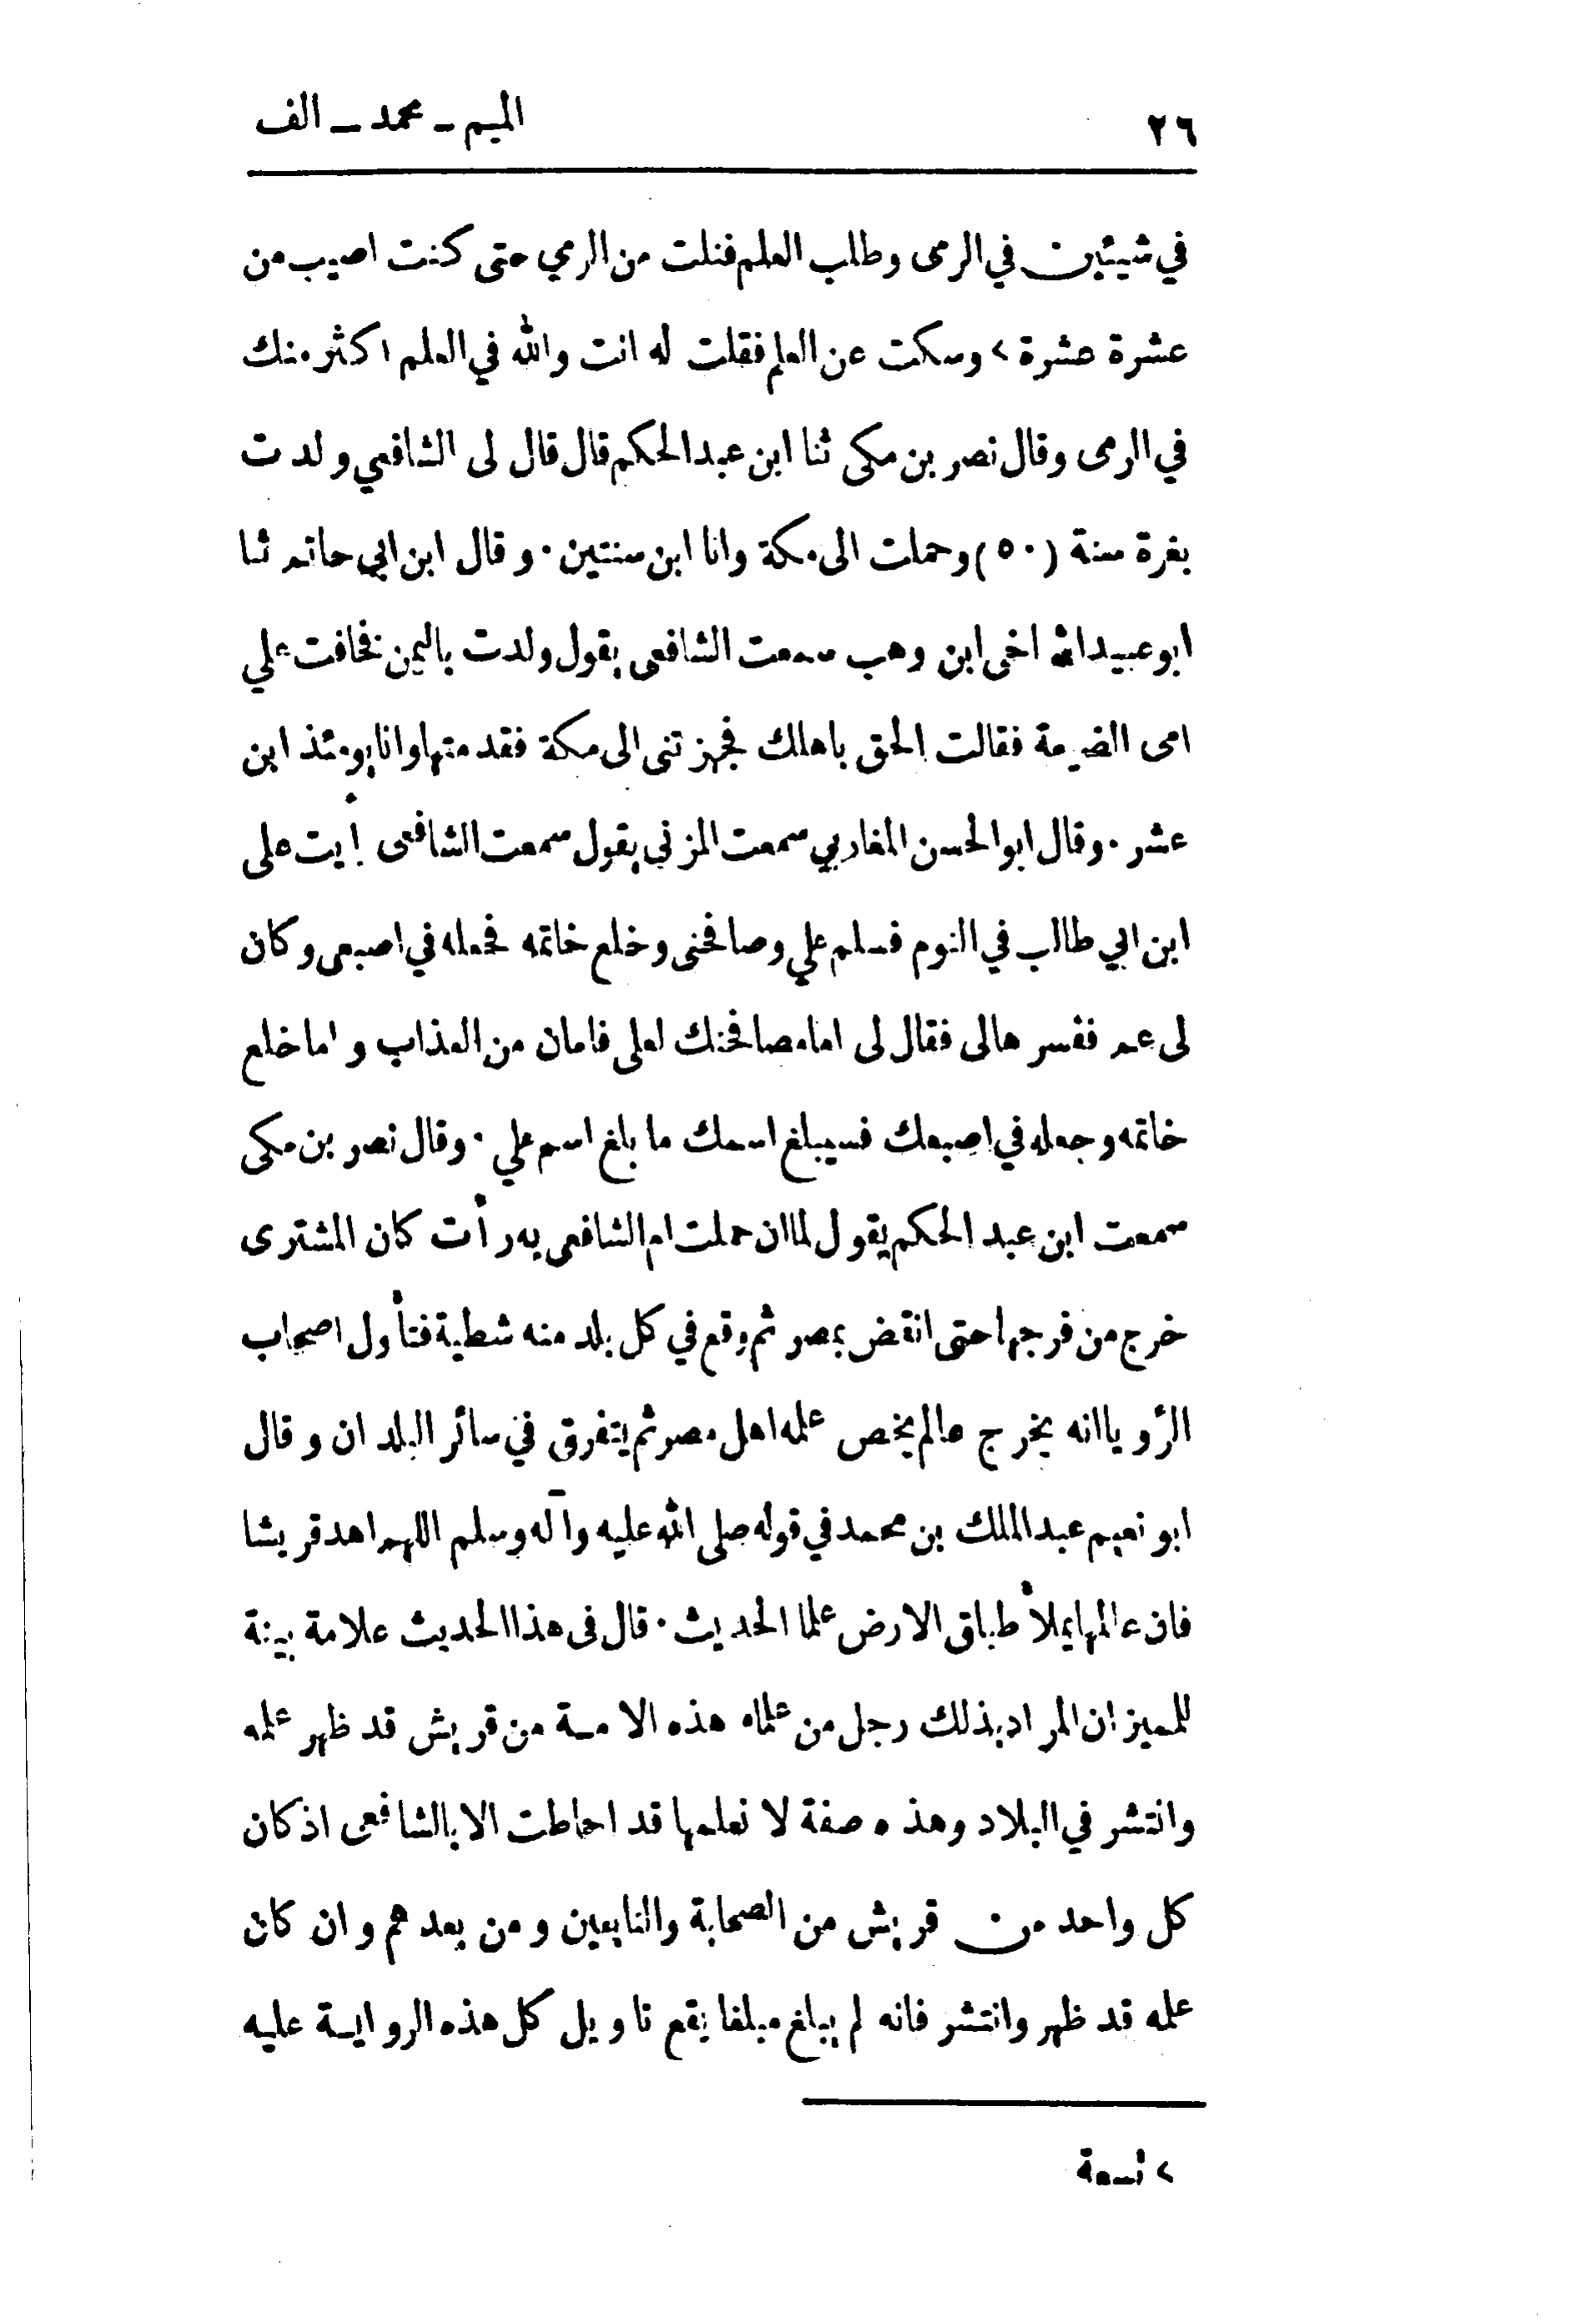 ٢٦
الميم ــ محمد ــ الف
في شيئين في الرمى وطلب العلم فنلت من الرمي حتى كنت اصيب من
عشرة عشرة > وسكت عن العلم فقلت له انت والله في العلم اكثر منك
في الرمى وقال نصر بن مكى ثنا ابن عبد الحكم قال قال لى الشافعي ولدت
بغزة سنة (٥٠) وحملت الى مكة وانا ابن سنتين. وقال ابن ابي حاتم ثنا
ابو عبيد الله اخى ابن وهب سمعت الشافعى يقول ولدت باليمن فخافت علي
امى الضيعة فقالت الحق باهلك فجهزتنى الى مكة فقدمتها وانا يومئذ ابن
عشر. وقال ابو الحسن المغاربي سمعت المزني يقول سمعت الشافعى أيت على
ابن ابي طالب في النوم فسلم علي وصافحنى وخلع خاتمه فجعله في اصبعى وكان
لى عم ففسرها لى فقال لى اما مصافحتك لعلى فامان من العذاب واما خلع
خاتمه وجعله في اصبعك فسيبلغ اسمك ما بلغ اسم علي. وقال نصر بن مكى
سمعت ابن عبد الحكم يقول لما ان حملت ام الشافعى به رأت كان المشترى
خرج من فرجها حتى انقض بمصر ثم وقع في كل بلد منه شظية فتأول اصحاب
الرؤيا انه يخرج عالم يخص علمه اهل مصر ثم يتفرق في سائر البلدان وقال
ابو نعيم عبد الملك بن محمد في قوله صلى الله عليه وآله وسلم اللهم اهد قريشا
فان عالمها يملأ طباق الارض علما الحديث. قال فى هذا الحديث علامة بينة
للمميز ان المراد بذلك رجل من علماء هذه الامة من قريش قد ظهر علمه
وانتشر في البلاد وهذه صفة لا نعلمها قد احاطت الا بالشافعى اذ كان
كل واحد من قريش من الصحابة والتابعين ومن بعدهم وان كان
علمه قد ظهر وانتشر فانه لم يبلغ مبلغا يقع تاويل كل هذه الرواية عليه
> تسعة